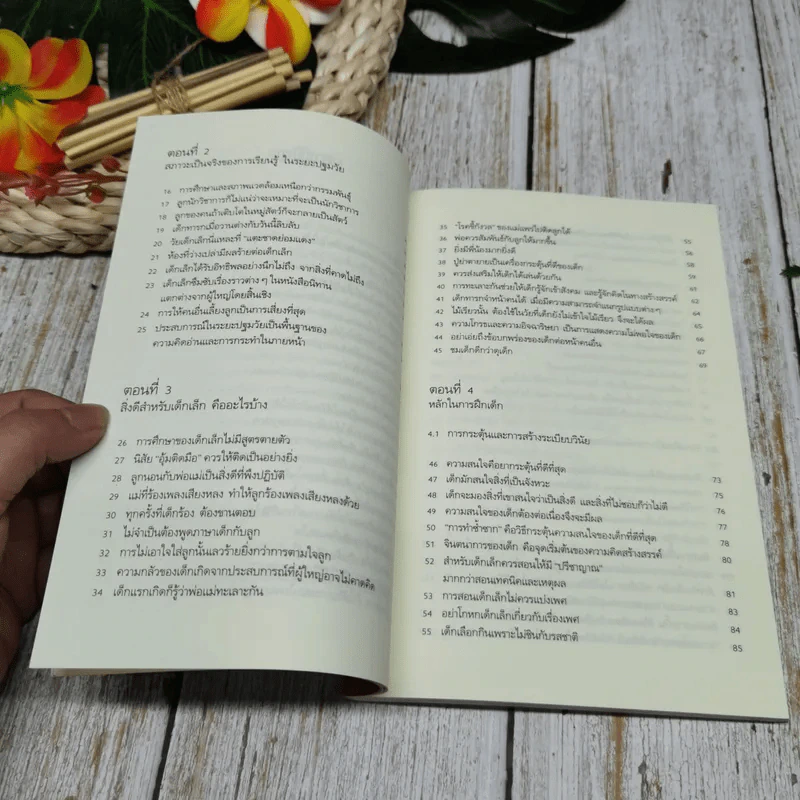 ตอนที่ 2
สภาวะเป็นจริงของการเรียนรู้ ในระยะปฐมวัย
16 การศึกษาและสภาพแวดล้อมเหนือกว่ากรรมพันธุ์
17 ลูกนักวิชาการก็ไม่แน่ว่าจะเหมาะที่จะเป็นนักวิชาการ
18 ลูกของคนถ้าเติบโตในหมู่สัตว์ก็จะกลายเป็นสัตว์
19 เด็กทารกเมื่อวานต่างกับวันนี้ลิบลับ
20 วัยเด็กเล็กนี่แหละที่ "แตะชาดย่อมแดง"
21 ห้องที่ว่างเปล่ามีผลร้ายต่อเด็กเล็ก
22 เด็กเล็กได้รับอิทธิพลอย่างนึกไม่ถึง จากสิ่งที่คาดไม่ถึง
23 เด็กเล็กซึมซับเรื่องราวต่าง ๆ ในหนังสือนิทาน
แตกต่างจากผู้ใหญ่โดยสิ้นเชิง
24 การให้คนอื่นเลี้ยงลูกเป็นการเสี่ยงที่สุด
25 ประสบการณ์ในระยะปฐมวัยเป็นพื้นฐานของ
ความคิดอ่านและการกระทำในภายหน้า
ตอนที่ 3
สิ่งดีสำหรับเด็กเล็ก คืออะไรบ้าง
26 การศึกษาของเด็กเล็กไม่มีสูตรตายตัว
27 นิสัย "อุ้มติดมือ" ควรให้ติดเป็นอย่างยิ่ง
28 ลูกนอนกับพ่อแม่เป็นสิ่งดีที่พึงปฏิบัติ
29 แม่ที่ร้องเพลงเสียงหลง ทำให้ลูกร้องเพลงเสียงหลงด้วย
30 ทุกครั้งที่เด็กร้อง ต้องขานตอบ
31 ไม่จำเป็นต้องพูดภาษาเด็กกับลูก
32 การไม่เอาใจใส่ลูกนั้นเลวร้ายยิ่งกว่าการตามใจลูก
33 ความกลัวของเด็กเกิดจากประสบการณ์ที่ผู้ใหญ่อาจไม่คาดคิด
34 เด็กแรกเกิดก็รู้ว่าพ่อแม่ทะเลาะกัน
35 "โรคขี้กังวล" ของแม่แพร่ไปติดลูกได้ 55
36 พ่อควรสัมพันธ์กับลูกให้มากขึ้น 56
37 ยิ่งมีพี่น้องมากยิ่งดี 58
38 ปู่ย่าตายายเป็นเครื่องกระตุ้นที่ดีของเด็ก 59
39 ควรส่งเสริมให้เด็กได้เล่นด้วยกัน 60
40 การทะเลาะกันช่วยให้เด็กรู้จักเข้าสังคม และรู้จักคิดในทางสร้างสรรค์ 61
41 เด็กทารกจำหน้าคนได้ เมื่อมีความสามารถจำแนกรูปแบบต่าง ๆ 63
42 ไม้เรียวนั้น ต้องใช้ในวัยที่เด็กยังไม่เข้าใจไม้เรียว จึงจะได้ผล 64
43 ความโกรธและความอิจฉาริษยา เป็นการแสดงความไม่พอใจของเด็ก 66
44 อย่าเอ่ยถึงข้อบกพร่องของเด็กต่อหน้าคนอื่น 67
45 ชมเด็กดีกว่าดุเด็ก 69
ตอนที่ 4
หลักในการฝึกเด็ก
4.1 การกระตุ้นและการสร้างระเบียบวินัย
46 ความสนใจคือยากระตุ้นที่ดีที่สุด 73
47 เด็กมักสนใจสิ่งที่เป็นจังหวะ 75
48 เด็กจะมองสิ่งที่เขาสนใจว่าเป็นสิ่งดี และสิ่งที่ไม่ชอบก็ว่าไม่ดี 76
49 ความสนใจของเด็กต้องต่อเนื่องจึงจะมีผล 77
50 "การทำซ้ำซาก" คือวิธีกระตุ้นความสนใจของเด็กที่ดีที่สุด 78
51 จินตนาการของเด็ก คือจุดเริ่มต้นของความคิดสร้างสรรค์ 80
52 สำหรับเด็กเล็กควรสอนให้มี "ปรีชาญาณ"
มากกว่าสอนเทคนิคและเหตุผล 81
53 การสอนเด็กเล็กไม่ควรแบ่งเพศ 83
54 อย่าโกหกเด็กเล็กเกี่ยวกับเรื่องเพศ 84
55 เด็กเลือกกินเพราะไม่ชินกับรสชาติ 85